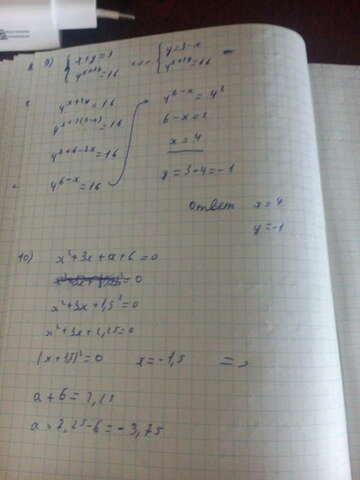 9) { x+y=3 { y=3-x
4^{x+2y}=16 4^{x+2y}=16
4^{x+2y}=16
4^{x+2(3-x)}=16
4^{x+6-2x}=16
4^{6-x}=16
4^{6-x}=4^2
6-x=2
x=4
y=3+4=-1
Ответ x=4
y=-1
10) x²+3x+a+6=0
x²+3x+1,5²=0
x²+3x+2,25=0
(x+1,5)²=0 x=-1,5
a+6=2,25
a=2,25-6=-3,75